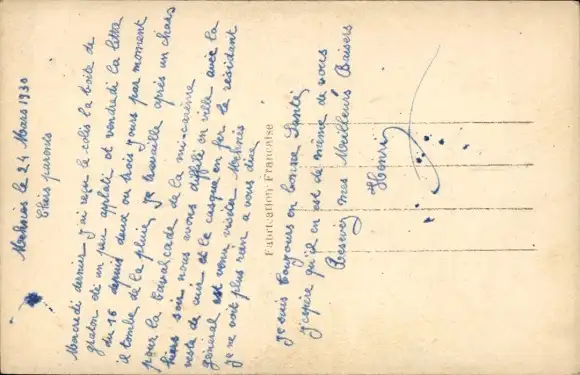 Meknès le 24 Mars 1930
Chers parents
Mercredi dernier j'ai reçu le colis la boite de
graton été un peu aplatie et vendredi la lettre
du 16 depuis deux ou trois jours par moment
il tombe de la pluie, je travaille après un chars
pour la Cavalcade de la mi-carême
hiers soir nous avons défilé en ville avec la
veste de cuir et le casque en fer le résidant
général est venu visiter Meknès
je ne voit plus rien a vous dire
Fabrication Française
je suis toujours en bonne Santé
j'espère qu'il en est de même de vous
Recevez mes Meilleurs Baisers
Henri